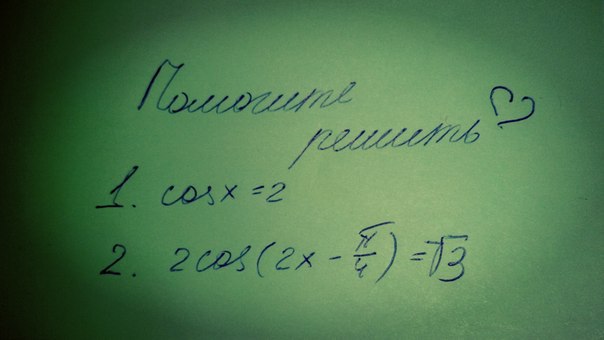 Помогите
решить
1. cosx=2
2. 2cos(2x - π/4) = √3